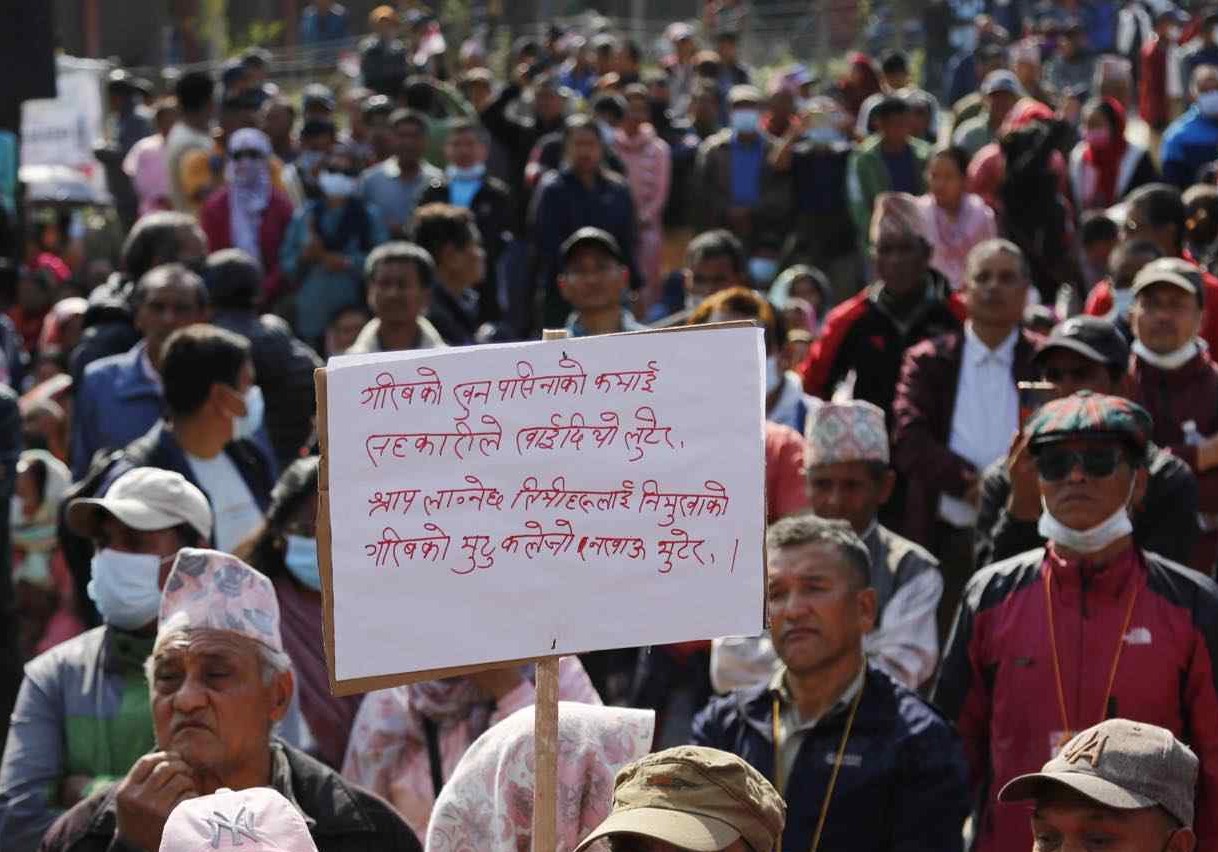 गरिबको खुन पसिनाको कमाई
सहकारीले खाईदियो लुटेर,
श्राप लाग्नेछ तिमीहरूलाई निमुखाको
गरिबको मुटु कलेजो नखाऊ मुटेर, ।
NY